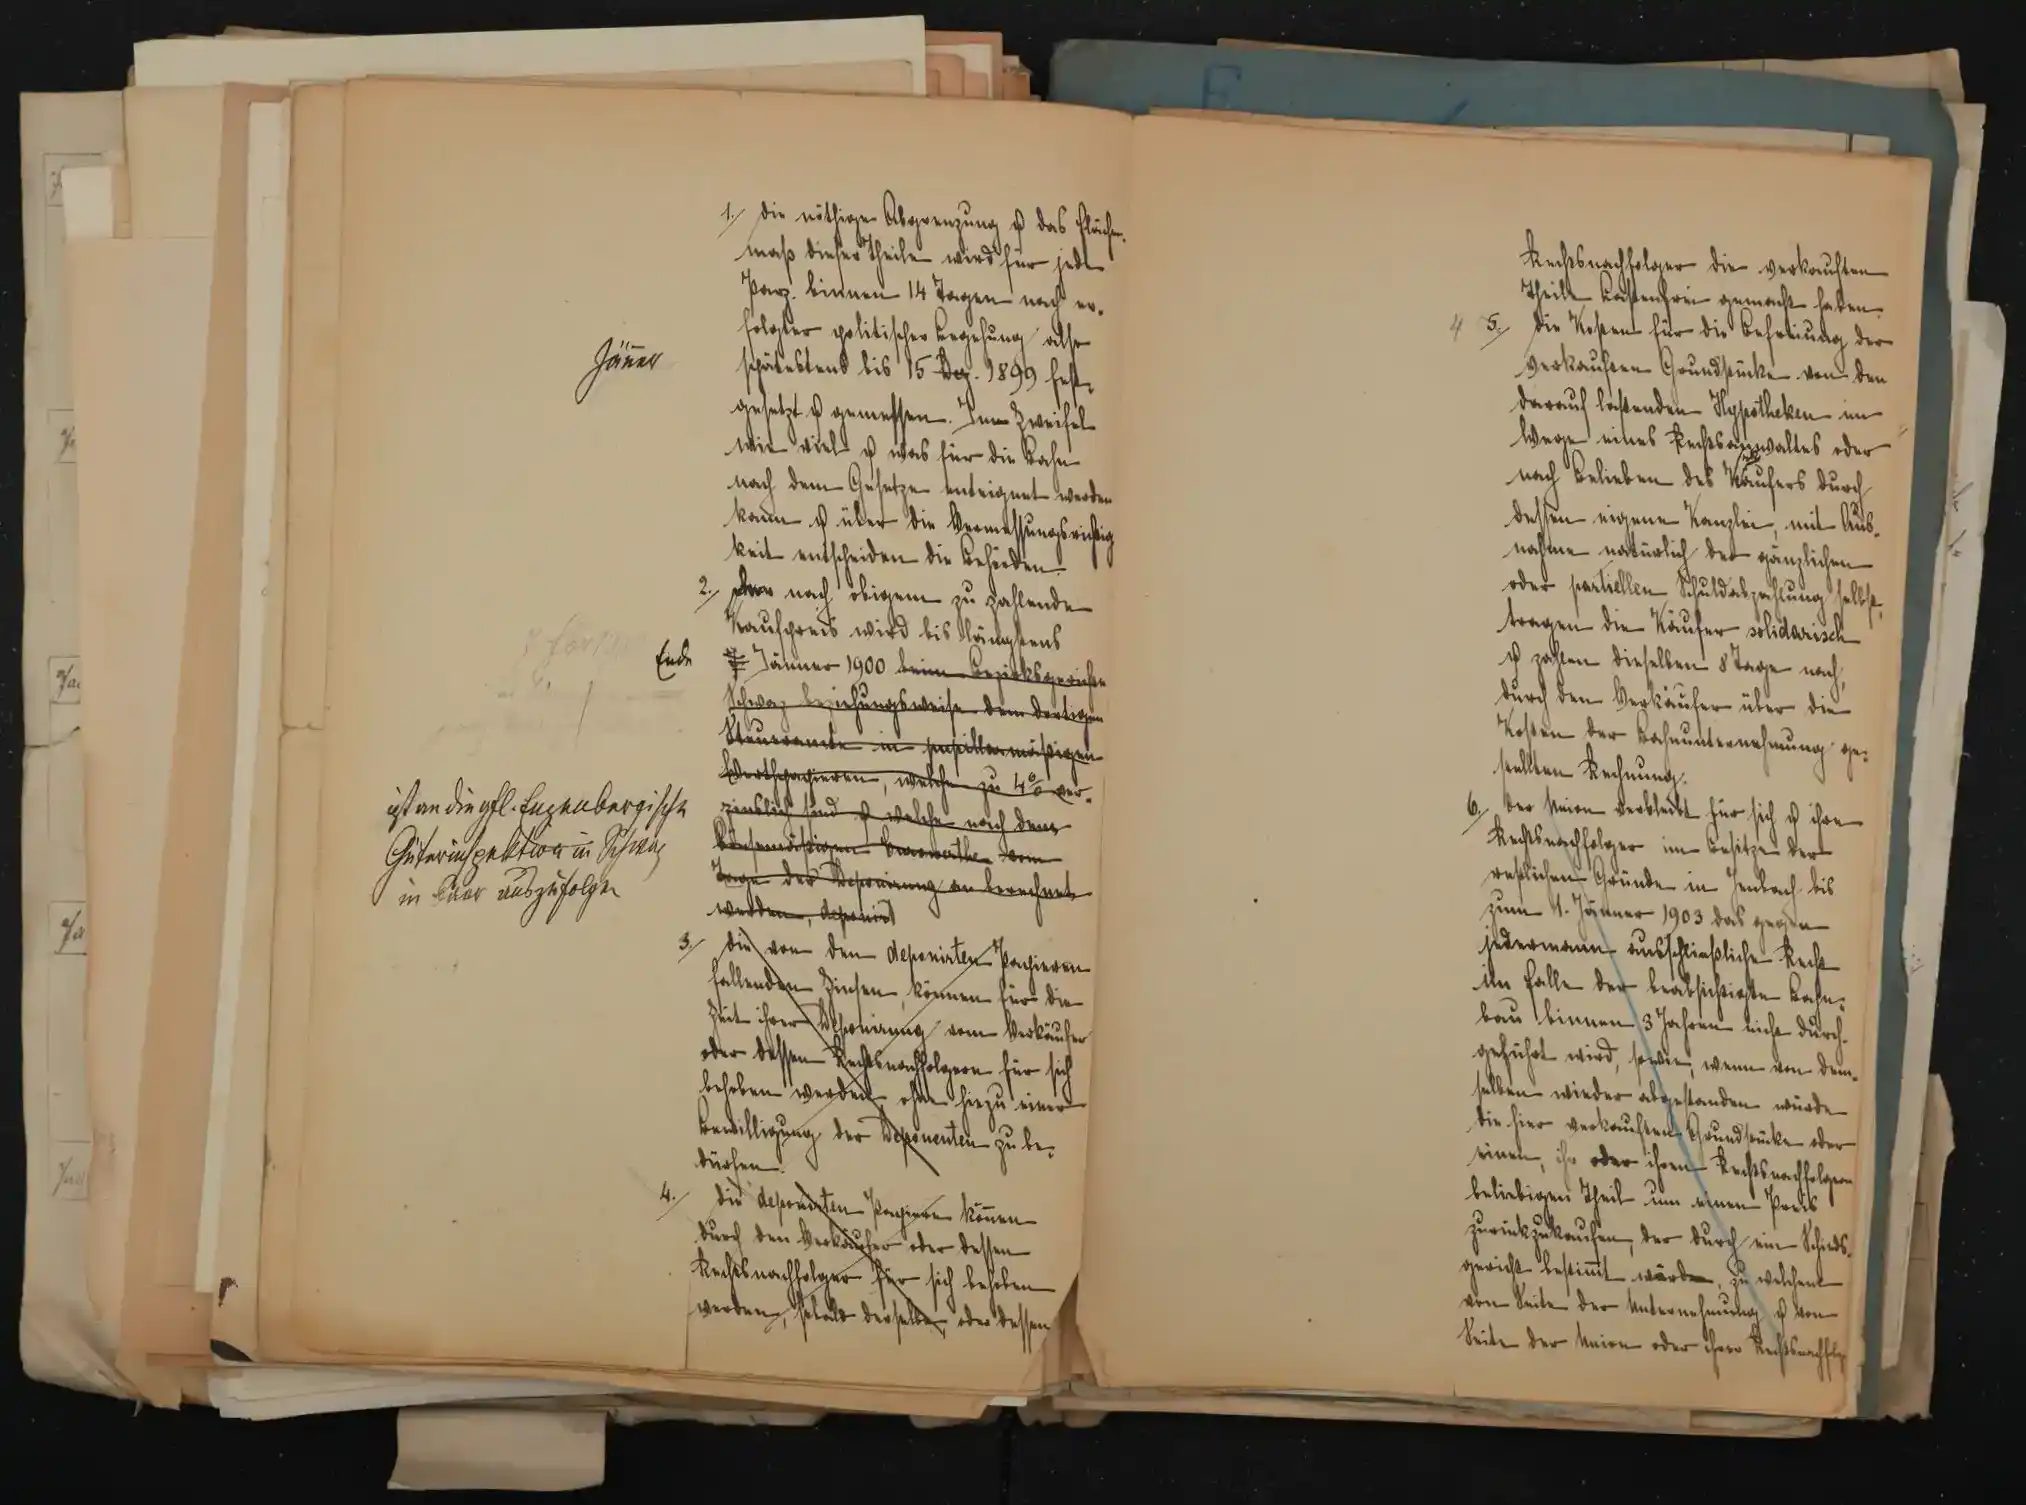 1./ Die nöthige Abgrenzung & das Flächen-
maß dieser Theile wird für jede
Parz. binnen 14 Tagen nach er-
folgter politischer Begehung also
Jänner
spätestens bis 15 Dez. 1899 fest-
gesetzt & gemessen. Im Zweifel
wie viel & was für die Bahn
nach dem Gesetze enteignet werden
kann & über die Vermessungsrichtig
keit entscheiden die Behörden.
2./ Der nach obigem zu zahlende
Kaufpreis wird bis längstens
Ende
Jänner 1900 beim Bezirksgerichte
Schwaz beziehungsweise dem dortigen
Steueramte in pupillarmäßigen
Werthpapieren, welche zu 4% ver-
zinslich sind & welche nach dem
börsemäßigen Curswerthe vom
Tage der Deponirung an berechnet
werden, deponirt
ist an die gfl. Enzenbergische
Güterinspektion in Schwaz
in Baar auszufolgen
3./ Die von den deponirten Papieren
fallenden Zinsen, können für die
Zeit ihrer Deponirung vom Verkäufer
oder dessen Rechtsnachfolgern für sich
behoben werden, ohne hiezu einer
Bewilligung der Deponenten zu be-
dürfen.
4./ Die deponirten Papiere können
durch den Verkäufer oder dessen
Rechtsnachfolger für sich behoben
werden, sobald derselbe, oder dessen
Rechtsnachfolger die verkauften
Theile lastenfrei gemacht haben.
4 5./ Die Kosten für die Befreiung der
verkauften Grundstücke von den
darauf lastenden Hypotheken im
Wege eines Rechtsanwaltes oder
nach Belieben des Käufers durch
dessen eigene Kanzlei, mit Aus-
nahme natürlich der gänzlichen
oder partiellen Schuldabzahlung selbst,
tragen die Käufer solidarisch
& zahlen dieselben 8 Tage nach,
durch den Verkäufer über die
Kosten der Bahnunternehmung ge-
stellten Rechnung.
6./ Der Union verbleibt für sich & ihre
Rechtsnachfolger im Besitze der
restlichen Gründe in Jenbach bis
zum 1. Jänner 1903 das gegen
jedermann ausschließliche Recht
im Falle der beabsichtigte Bahn-
bau binnen 3 Jahren nicht durch-
geführt wird, sowie, wenn von dem-
selben wieder abgestanden würde
die hier verkauften Grundstücke oder
einen, ihr oder ihren Rechtsnachfolgern
beliebigen Theil um einen Preis
zurückzukaufen, der durch ein Schieds-
gericht bestimmt würde, zu welchem
von Seite der Unternehmung & von
Seite der Union oder ihrer Rechtsnachfolger